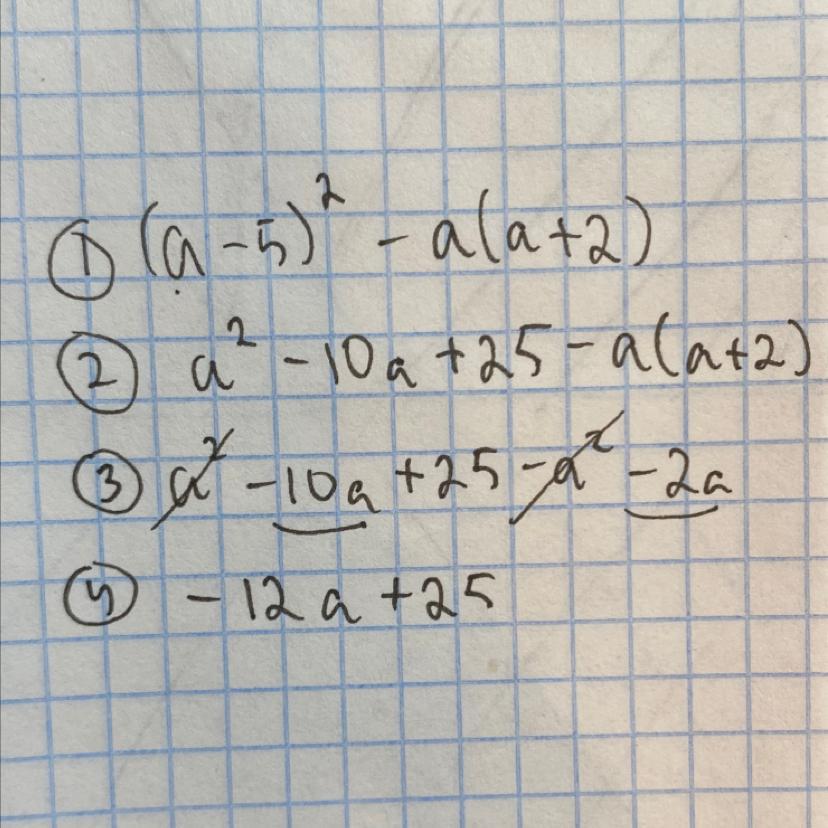 ① (a - 5)² - a(a + 2)
② a² - 10a + 25 - a(a + 2)
③ a² - 10a + 25 - a² - 2a
④ - 12a + 25